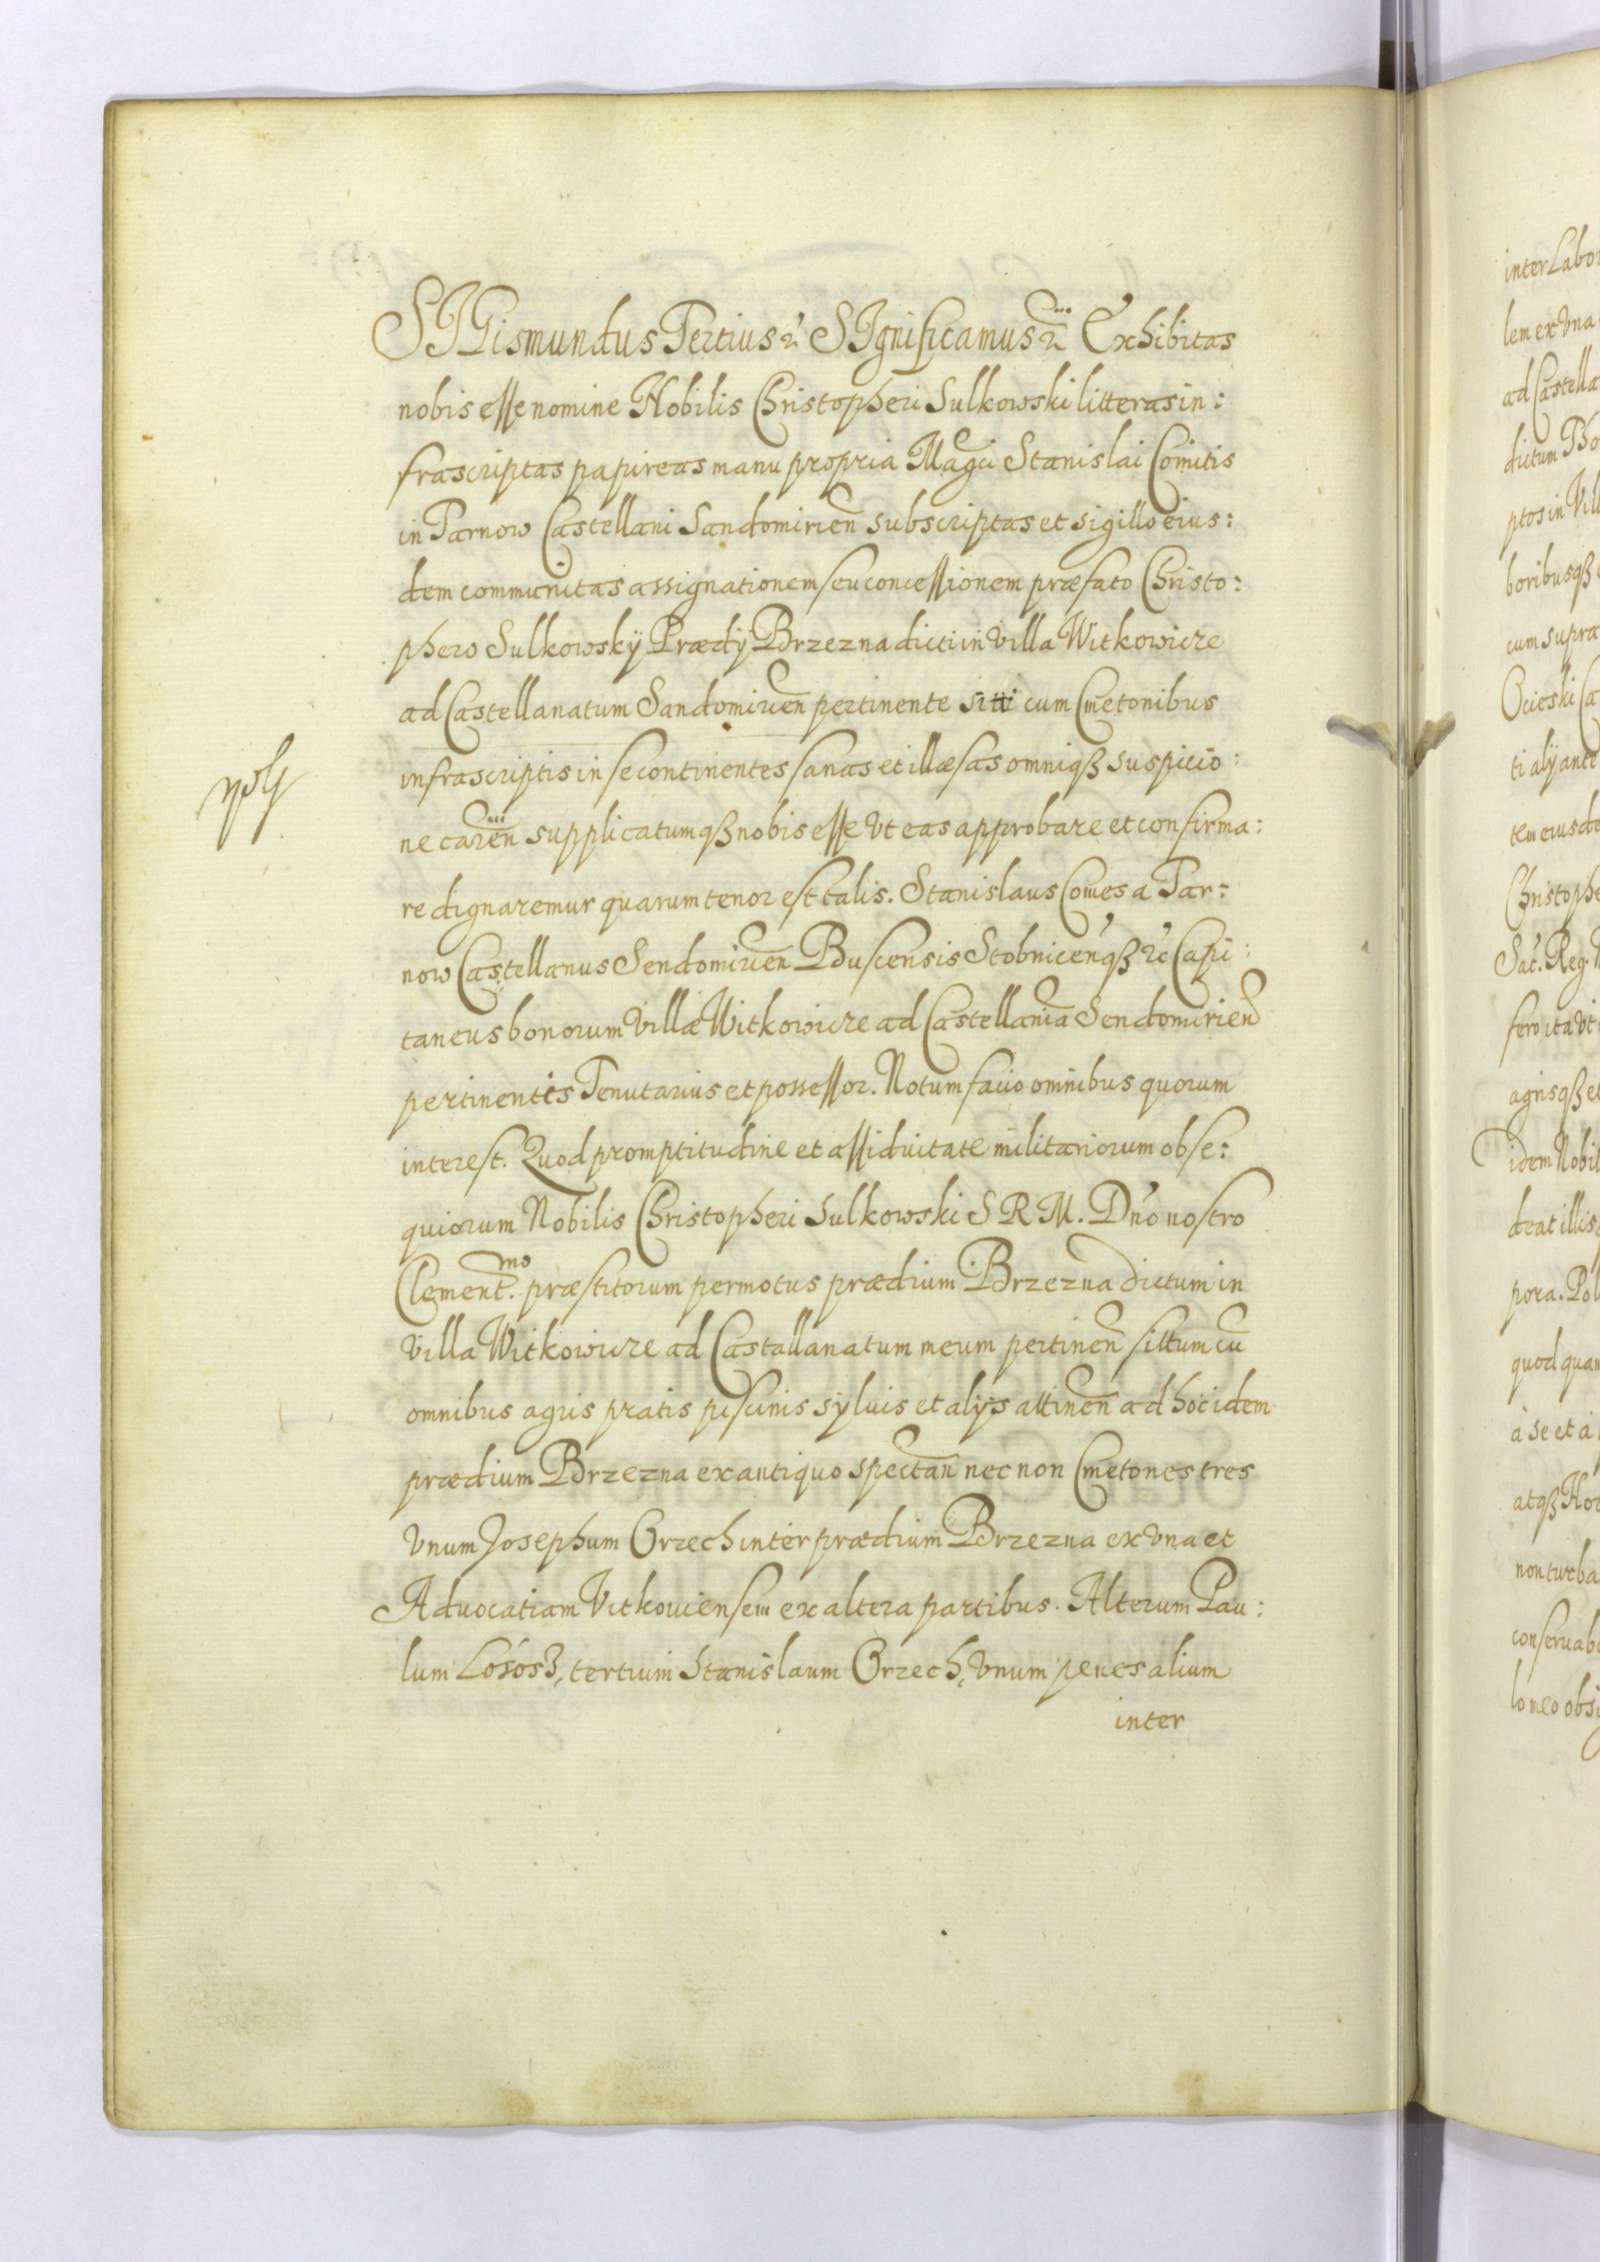 SIGismundus Tertius &c SIgnificamus &c Exhibitas
nobis esse nomine Nobilis Christopheri Sulkowski litteras in:
frascriptas papireas manu propria Magci Stanislai Comitis
in Tarnow Castellani Sandomirien subscriptas et sigillo eius:
dem communitas assignationem seu concessionem præfato Christo:
phero Sulkowskÿ Prædÿ Brzezna dicti in villa Witkowicze
ad Castellanatum Sandomirien pertinente siti cum Cmetonibus
infrascriptis in se continentes sanas et illæsas omniqꝫ suspicio:
ne caren supplicatumqꝫ nobis esse Vt eas approbare et confirma:
re dignaremur quarum tenor est talis. Stanislaus Comes a Tar:
now Castellanus Sendomirien Buscensis Stobnicen'qꝫ &c Capi:
taneus bonorum Villæ Witkowicze ad Castellania Sendomirien
pertinentis Tenutarius et possessor. Notum facio omnibus quorum
interest. Quod promptitudine et assiduitate militariorum obse:
quiorum Nobilis Christopheri Sulkowski S R M. Dno nostro
Clement.mo præstitorum permotus prædium Brzezna dictum in
villa Witkowicze ad Castallanatum meum pertinen sittum cu
omnibus agris pratis piscinis syluis et alÿs attinen ad hoc idem
prædium Brzezna ex antiquo spectan nec non Cmetones tres
Vnum Josephum Orzech inter prædium Brzezna ex vna et
Aduocatiam Vitkouiensem ex altera partibus. Alterum Pau:
lum Łososz, tertium Stanislaum Orzech, Vnum penes alium
inter
inter Labo
lem ex Vna
ad Castella
dictum Bo
ptos in Vill
boribusqꝫ
cum supra
Ocieski Ca
ti alÿ ante
tem eiusde
Christophe
Sac. Reg.
fero ita Vt
agrisqꝫ et
idem Nobil
deat illis
pora. Pol
quod quam
à se et à
atqꝫ Hor
non turba
conseruabo
lo meo obsi